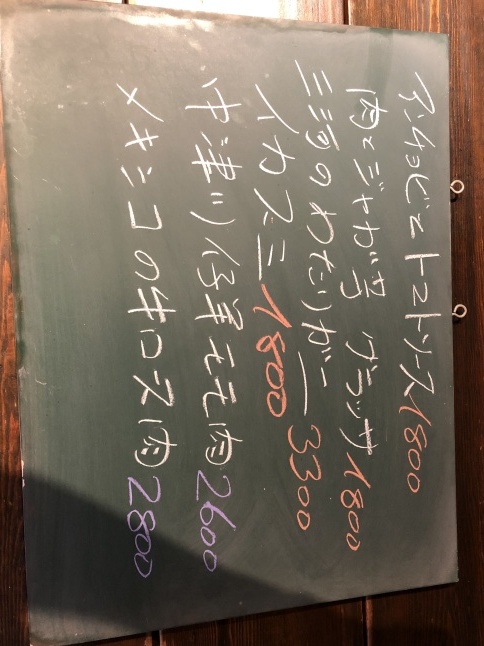 アンチョビとトマトソース1800
肉とジャガ芋 ブラッサ1800
三河のわたりガニ3300
イカスミ1800
仔羊モモ肉2600
メキシコの牛ロース肉2800